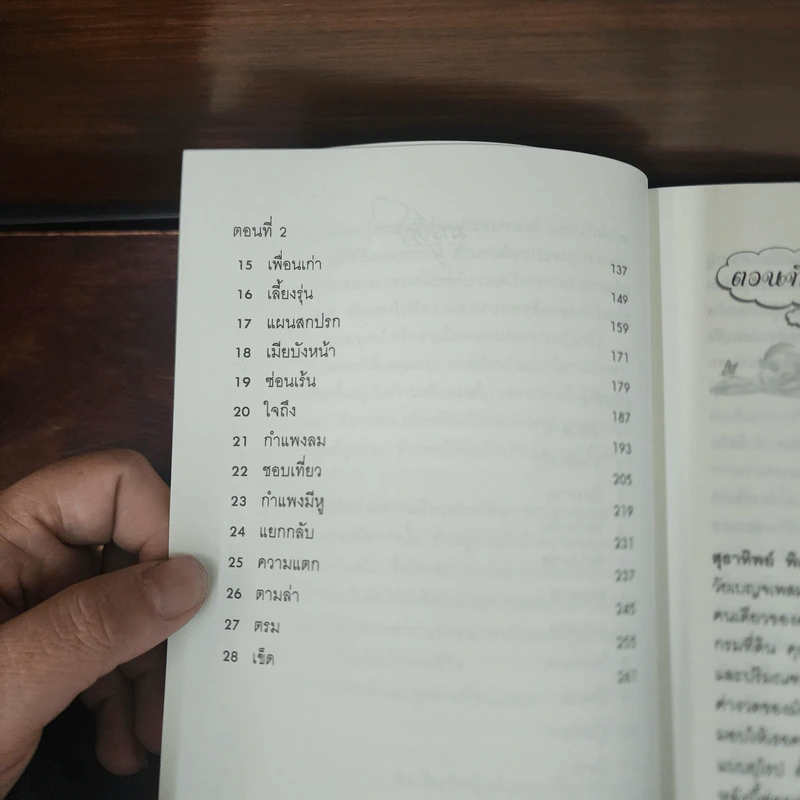 ตอนที่ 2
15 เพื่อนเก่า 137
16 เลี้ยงรุ่น 149
17 แผนสกปรก 159
18 เมียบังหน้า 171
19 ซ่อนเร้น 179
20 ใจถึง 187
21 กำแพงลม 193
22 ชอบเที่ยว 205
23 กำแพงมีหู 219
24 แยกกลับ 231
25 ความแตก 237
26 ตามล่า 245
27 ตรม 255
28 เข็ด
สุธาทิพย์
วัยเบญจเพส
คนเดียวของ
กรมที่ดิน
และปริมณฑ